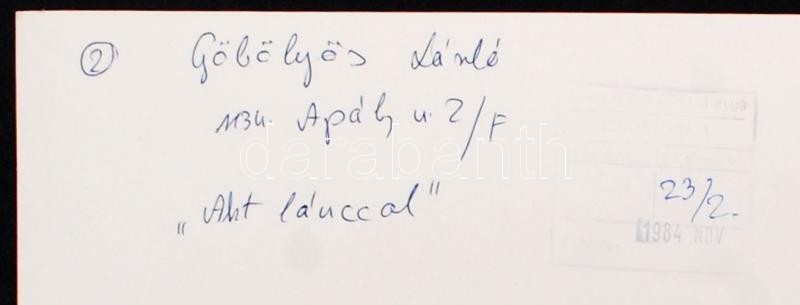 ② Göbölyös László
1134. Apály u. 2/F
darabanth
„Akt lánccal"
23/2.
1984 NOV